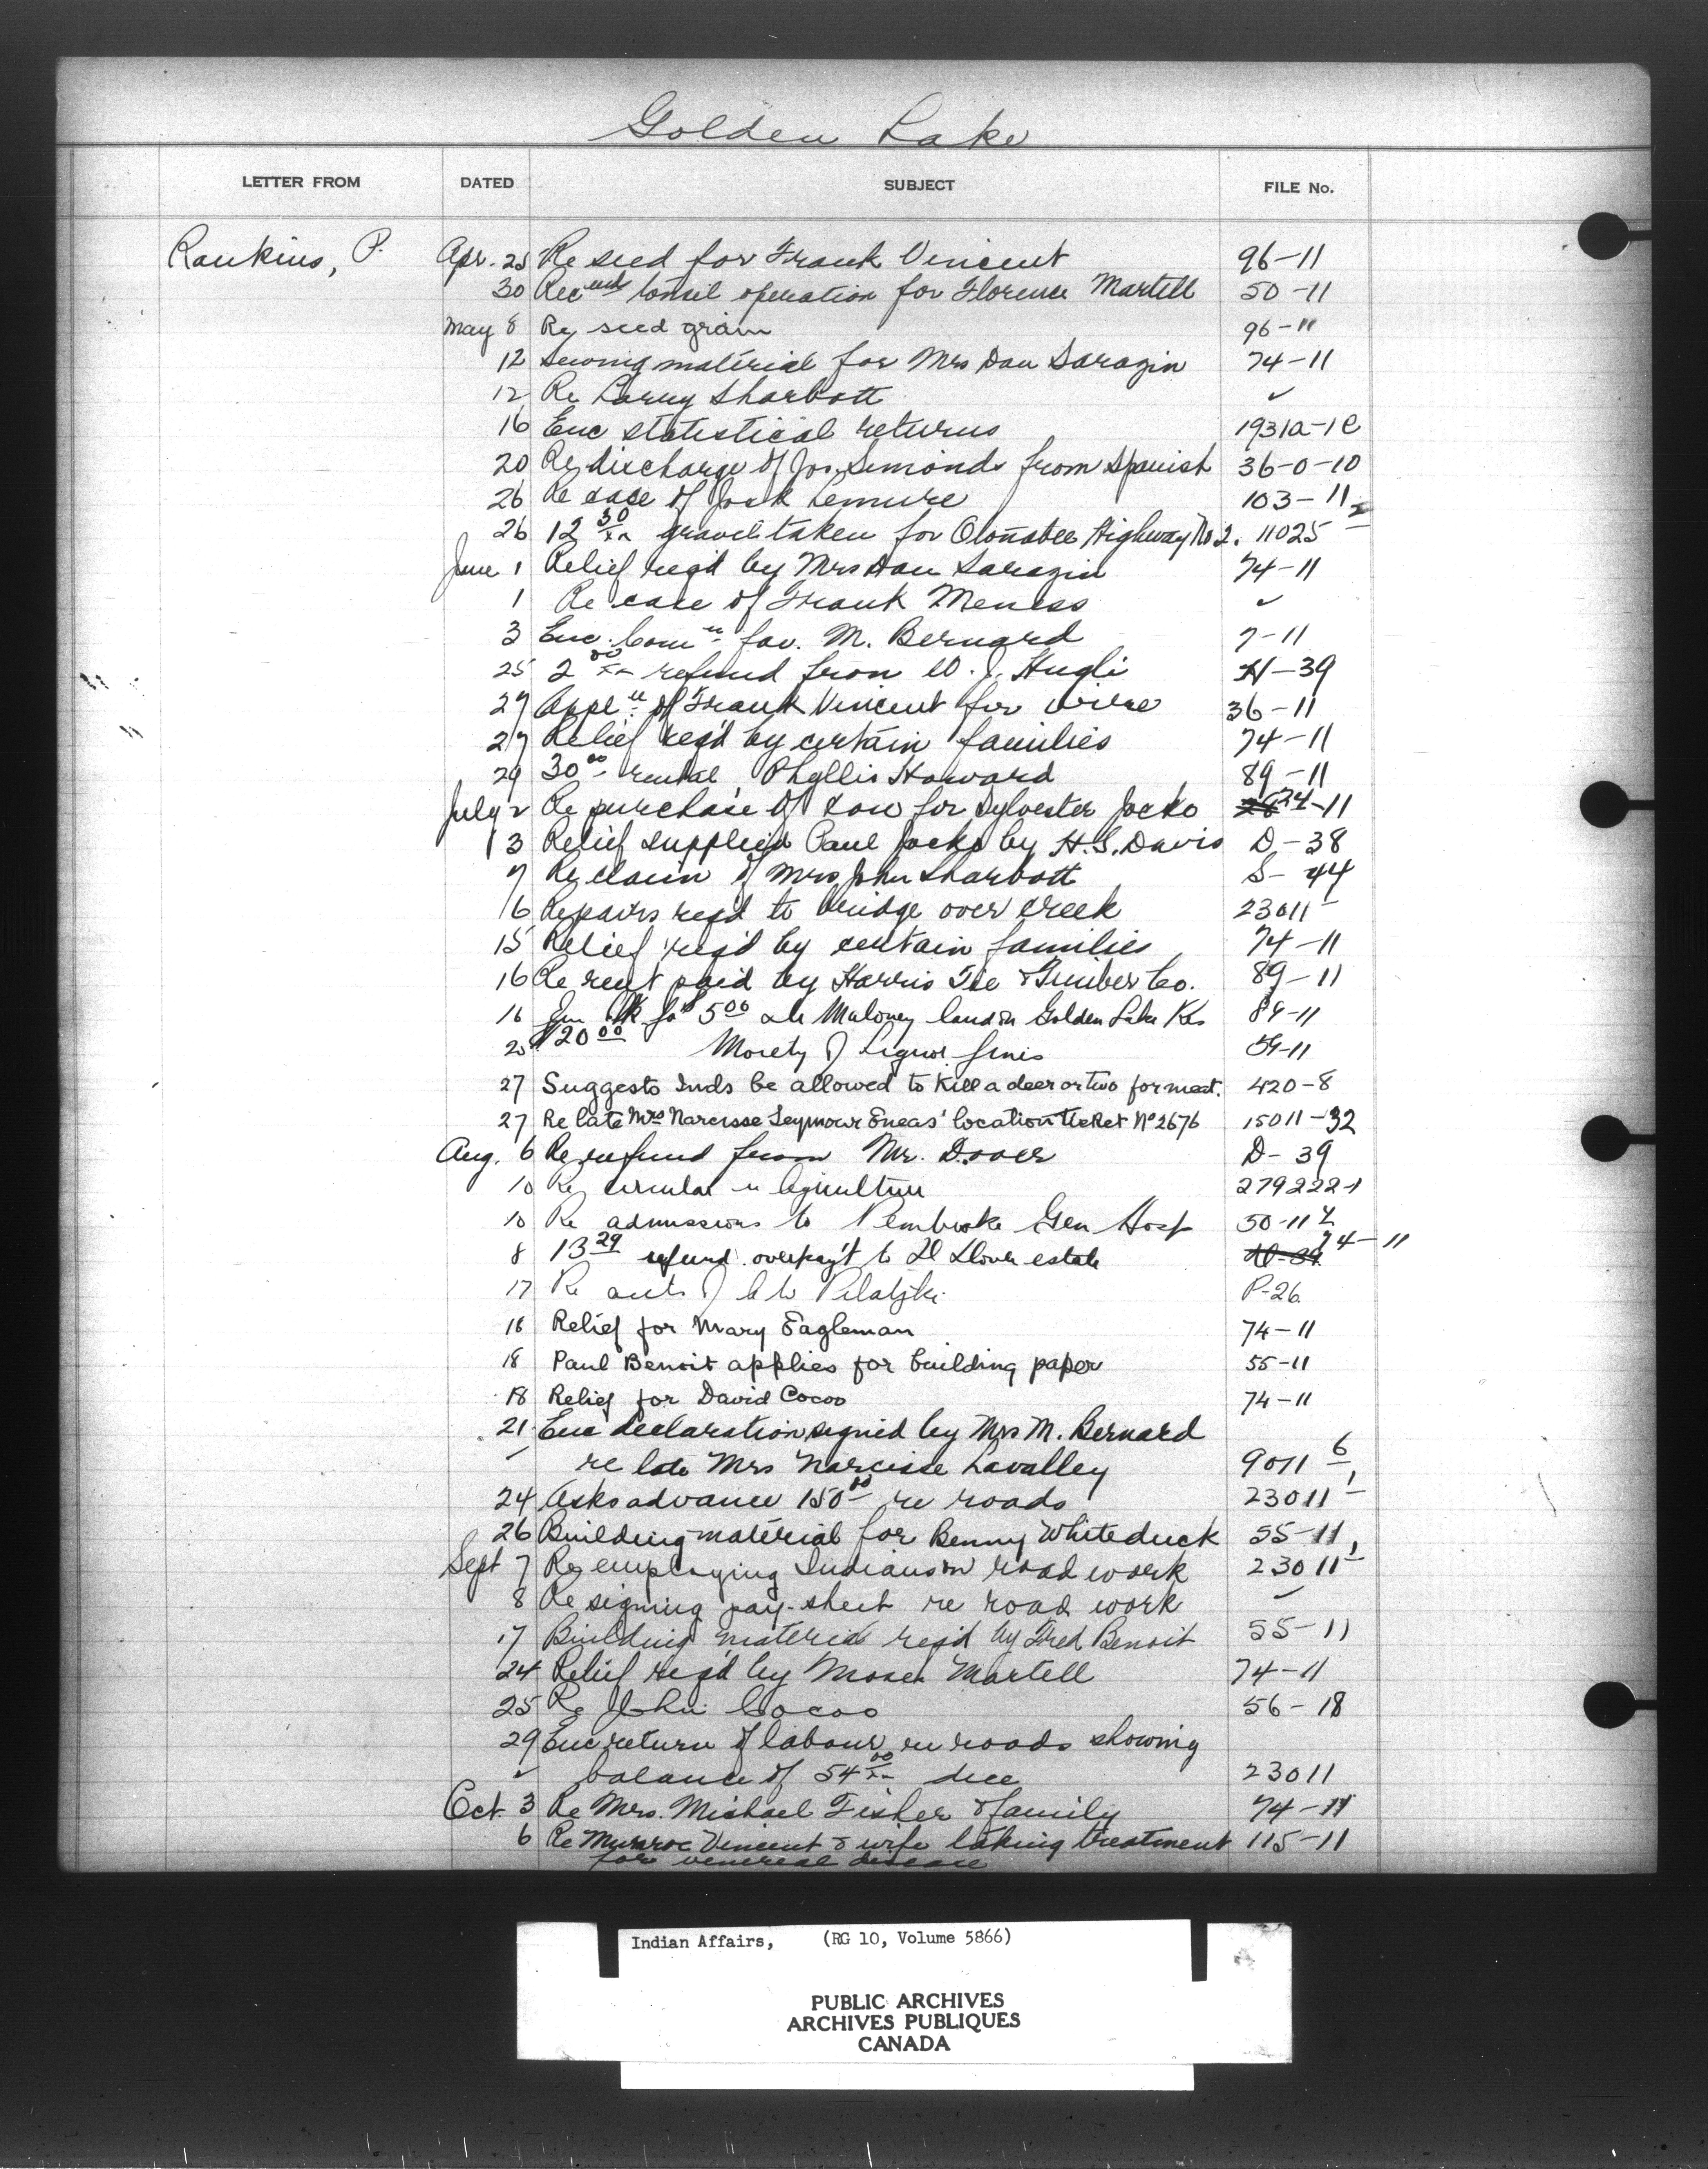 Golden Lake
LETTER FROM DATED SUBJECT FILE No.
Rankins, P. Apr. 25 Re seed for Frank Vincent 96-11
30 Rec ends tonsil operation for Florence Martell 50-11
May 8 Re seed grain 96-11
12 Sewing material for Mrs Dan Sarazin 74-11
12 Re Larry Sharbott ✓
16 Enc statistical returns 1931a-1e
20 Re discharge of Jos. Simonds from Spanish 36-0-10
26 Re case of Jack Lemure 103-11-2
26 12 30/xx gravel taken for Otonabee Highway No 2. 11025-
June 1 Relief reqd by Mrs Dan Sarazin 74-11
1 Re case of Frank Meness ✓
3 Enc. Com n fav. M. Bernard 7-11
25 2 00/xx refund from W. J. Hugli H-39
27 Appl n of Frank Vincent for wire 36-11
27 Relief reqd by certain families 74-11
29 30 00 rental Phyllis Howard 89-11
July 2 Re purchase of sow for Sylvester Jocko 24-11
3 Relief supplied Paul Jocko by H.S. Davis D-38
7 Re claim of Mrs John Sharbott S-44
6 Repairs reqd to bridge over creek 23011-
15 Relief reqd by certain families 74-11
16 Re rent paid by Harris Tie & Timber Co. 89-11
16 for $5 00 Maloney land on Golden Lake Res 89-11
20 $20 00 Moiety of liquor fines 59-11
27 Suggests Inds be allowed to kill a deer or two for meat. 420-8
27 Re late Mrs Narcisse Seymour Eneas' location ticket No 2676 15011-32
Aug. 6 Re refund from Mr. Dover D-39
10 Re circular re Agriculture 279222-1
10 Re admissions to Pembroke Gen Hosp 50-11
8 13 29 refund overpay't to Dover estate 74-11
17 Re acct of P-26
18 Relief for Mary Eagleman 74-11
18 Paul Benoit applies for building paper 55-11
18 Relief for David Cocoo 74-11
21 Enc declaration signed by Mrs M. Bernard
re late Mrs Narcisse Lavalley 9011-6
24 Asks advance 150 00 re roads 23011-1
26 Building material for Benny Whiteduck 55-11
Sept 7 Re employing Indians on road work 23011-1
8 Re signing pay-sheet re road work ✓
17 Building material reqd by Fred Benoit 55-11
24 Relief reqd by Moses Martell 74-11
25 Re John Cocoo 56-18
29 Enc return of labour re roads showing
✓ balance of 54 00/xx due 23011
Oct. 3 Re Mrs. Michael Fisher & family 74-11
6 Re Munroe Vincent & wife taking treatment 115-11
for venereal disease
Indian Affairs, (RG 10, Volume 5866)
PUBLIC ARCHIVES
ARCHIVES PUBLIQUES
CANADA